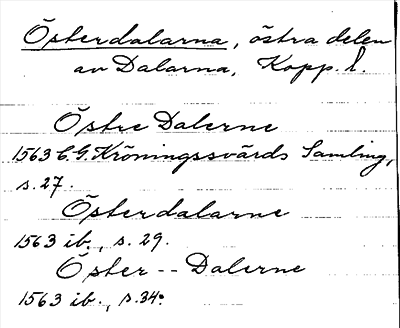 Österdalarna, östra delen
av Dalarna, Kopp. l.
Östre Dalerne
1563 C.G. Kröningssvärds Samling,
s. 27.
Österdalarne
1563 ib., s. 29.
Öster -- Dalerne
1563 ib., s. 34.